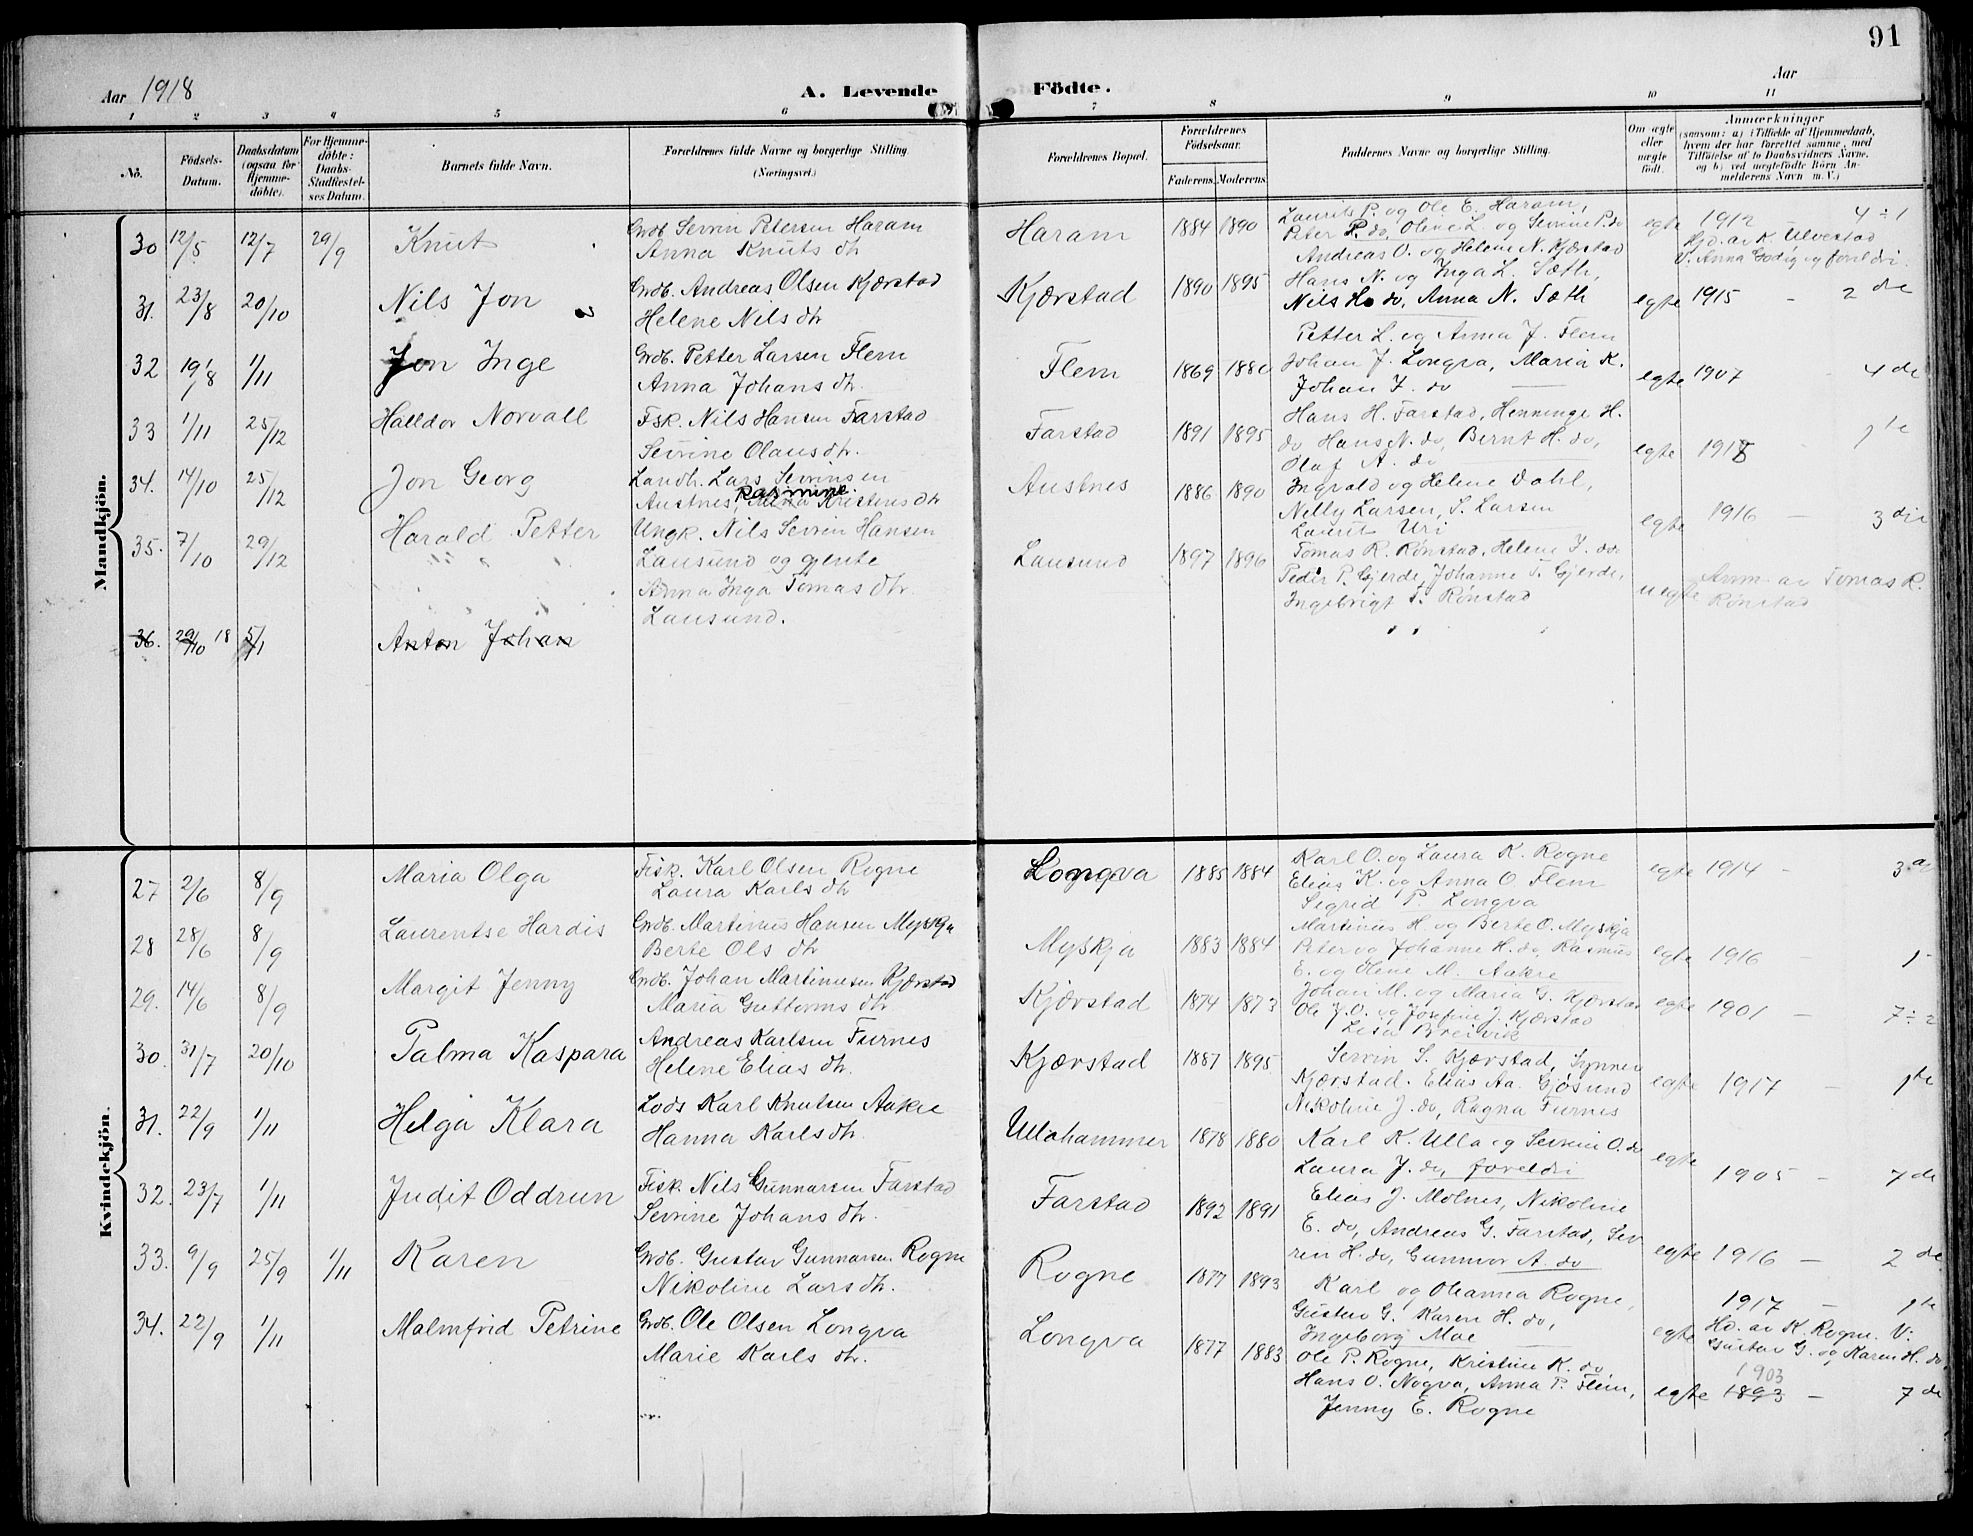 91
Aar 1918
A. Levende
Födte.
Aar
1 2 3 4 5 6 7 8 9 10 11
No.
Födsels-Datum.
Daabsdatum (ogsaa for Hjemme-döbte).
For Hjemme-döbte: Daabs-Stadfæstel-ses Datum.
Barnets fulde Navn.
Forældrenes fulde Navne og borgerlige Stilling (Næringsvei.)
Forældrenes Bopæl.
Forældrenes Födselsaar.
Faderens. Moderens.
Faddernes Navne og borgerlige Stilling.
Om ægte eller uægte födt.
Anmærkninger
(saasom: a) i Tilfælde af Hjemmedaab,
hvem der har forrettet samme, med
Tilföielse af to Daabsvidners Navne.
og b) ved uægtefödte Börn An-
melderens Navn m. V.)
Mandkjön.
30 12/5 12/7 29/9 Knut
Grdb. Sevrin Petersen Haram
Anna Knuts dtr
Haram 1884 1890
Laurits P. og Ole E. Haram,
Peter P. do, Oline L. og Sevrine P. do
Andreas O. og Helene N. Kjærstad
egte 1912 4 ÷ 1
Hjd. av K. Ulvestad
V. Anna Godig og foreldri.
31. 23/8 20/10 Nils Jon
Grdb. Andreas Olsen Kjærstad
Helene Nils dtr
Kjærstad 1890 1895
Hans N. og Inga L. Sæth,
Nils H. do, Anna N. Sæth
egte 1915 - 2 de
32 19/8 1/11 Jon Inge
Grdb. Petter Larsen Flem
Anna Johans dtr.
Flem 1869 1880
Petter L. og Anna J. Flem
Johan J. Longva, Maria K.
Johan J. do
egte 1907 - 4 de
33 1/11 25/12 Halldor Norvall
Fsk. Nils Hansen Farstad
Sevrine Olaus dtr.
Farstad 1891 1895
Hans H. Farstad, Henninge H.
do Hans N. do, Bernt H. do,
Olaf A. do
egte 1918 - 1 te
34. 14/10 25/12 Jon Georg
Landh. Lars Sevrinsen
Rasmine
Austnes, Kristens dtr
Austnes 1886 1890
Ingvald og Helene Dahl,
Nelly Larsen, S. Larsen
Laurit Uri
egte 1916 - 3 die
35. 7/10 29/12 Harald Petter
Ungk. Nils Sevrin Hansen
Lausund og gjente
Anna Inga Tomas dtr.
Lausund.
Lausund 1897 1896
Tomas R. Rønstad, Helene J. do
Peder P. Gjerde, Johanne T. Gjerde,
Ingebrigt T. Rønstad
uegte Anm av Tomas R.
Rønstad
36. 29/10 18 5/1 Anton Johan
Kvindekjön.
27 2/6 8/9 Maria Olga
Fisk. Karl Olsen Rogne
Laura Karls dtr
Longva 1885 1884
Karl O. og Laura K. Rogne
Elias K. og Anna O. Flem
Sigrid P. Longva
egte 1914 -
28 28/6 8/9 Laurentse Hardis
Grdb. Martinus Hansen Myskja
Berte Ols dtr
Myskja 1883 1884
Martinus H. og Berte O. Myskja
Peter og Johanne H. do, Rasmus
E. og Olene M. Aakre
egte 1916 -
29. 14/6 8/9 Margit Jenny
Grdb. Johan Martinusen Kjærstad
Maria Guttorms dtr
Kjærstad 1874 1873
Johan M. og Maria G. Kjærstad
Ole J. O. og Josefine J. Kjærstad
Lisa Breivik
egte 1901 - 7 ÷ 2
30. 31/7 20/10 Palma Kaspara
Andreas Karlsen Furnes
Helene Elias dtr.
Kjærstad 1887 1895
Sevrin S. Kjærstad, Synnev
Kjærstad. Elias Aa. Gjøsund
Nikoline J. do, Ragna Furnes
egte 1917 - 1 te
31. 22/9 1/11 Helga Klara
Lods Karl Knutsen Aakre
Hanna Karls dtr.
Ullahammer 1878 1880
Karl K. Ulla og Sevrine O. do
Laura J. do, foreldri
egte 1905 - 7 de
32. 23/7 1/11 Judit Oddrun
Fisk. Nils Gunnarsen Farstad
Sevrine Johans dtr.
Farstad 1892 1891
Elias J. Molnes, Nikoline
E. do, Andreas G. Farstad, Sev
rin H. do, Gunnvor A. do
egte 1916 - 2 de
33. 9/9 25/9 1/11 Karen
Grdb. Gustav Gunnarsen Rogne
Nikoline Lars dtr.
Rogne 1877 1893
Karl og Ohanna Rogne,
Gustav G. Karen H. do,
Ingeborg Moe
egte 1917 - 1 te
Hd. av K. Rogne. V:
Gustav G. og Karen H. do
34. 22/9 1/11 Malmfrid Petrine
Grdb. Ole Olsen Longva
Marie Karls dtr.
Longva 1877 1883
Ole P. Rogne, Kristine K. do
Hans O. Nogva, Anna P. Flem,
Jenny E. Rogne
1903
egte 1893 - 7 de